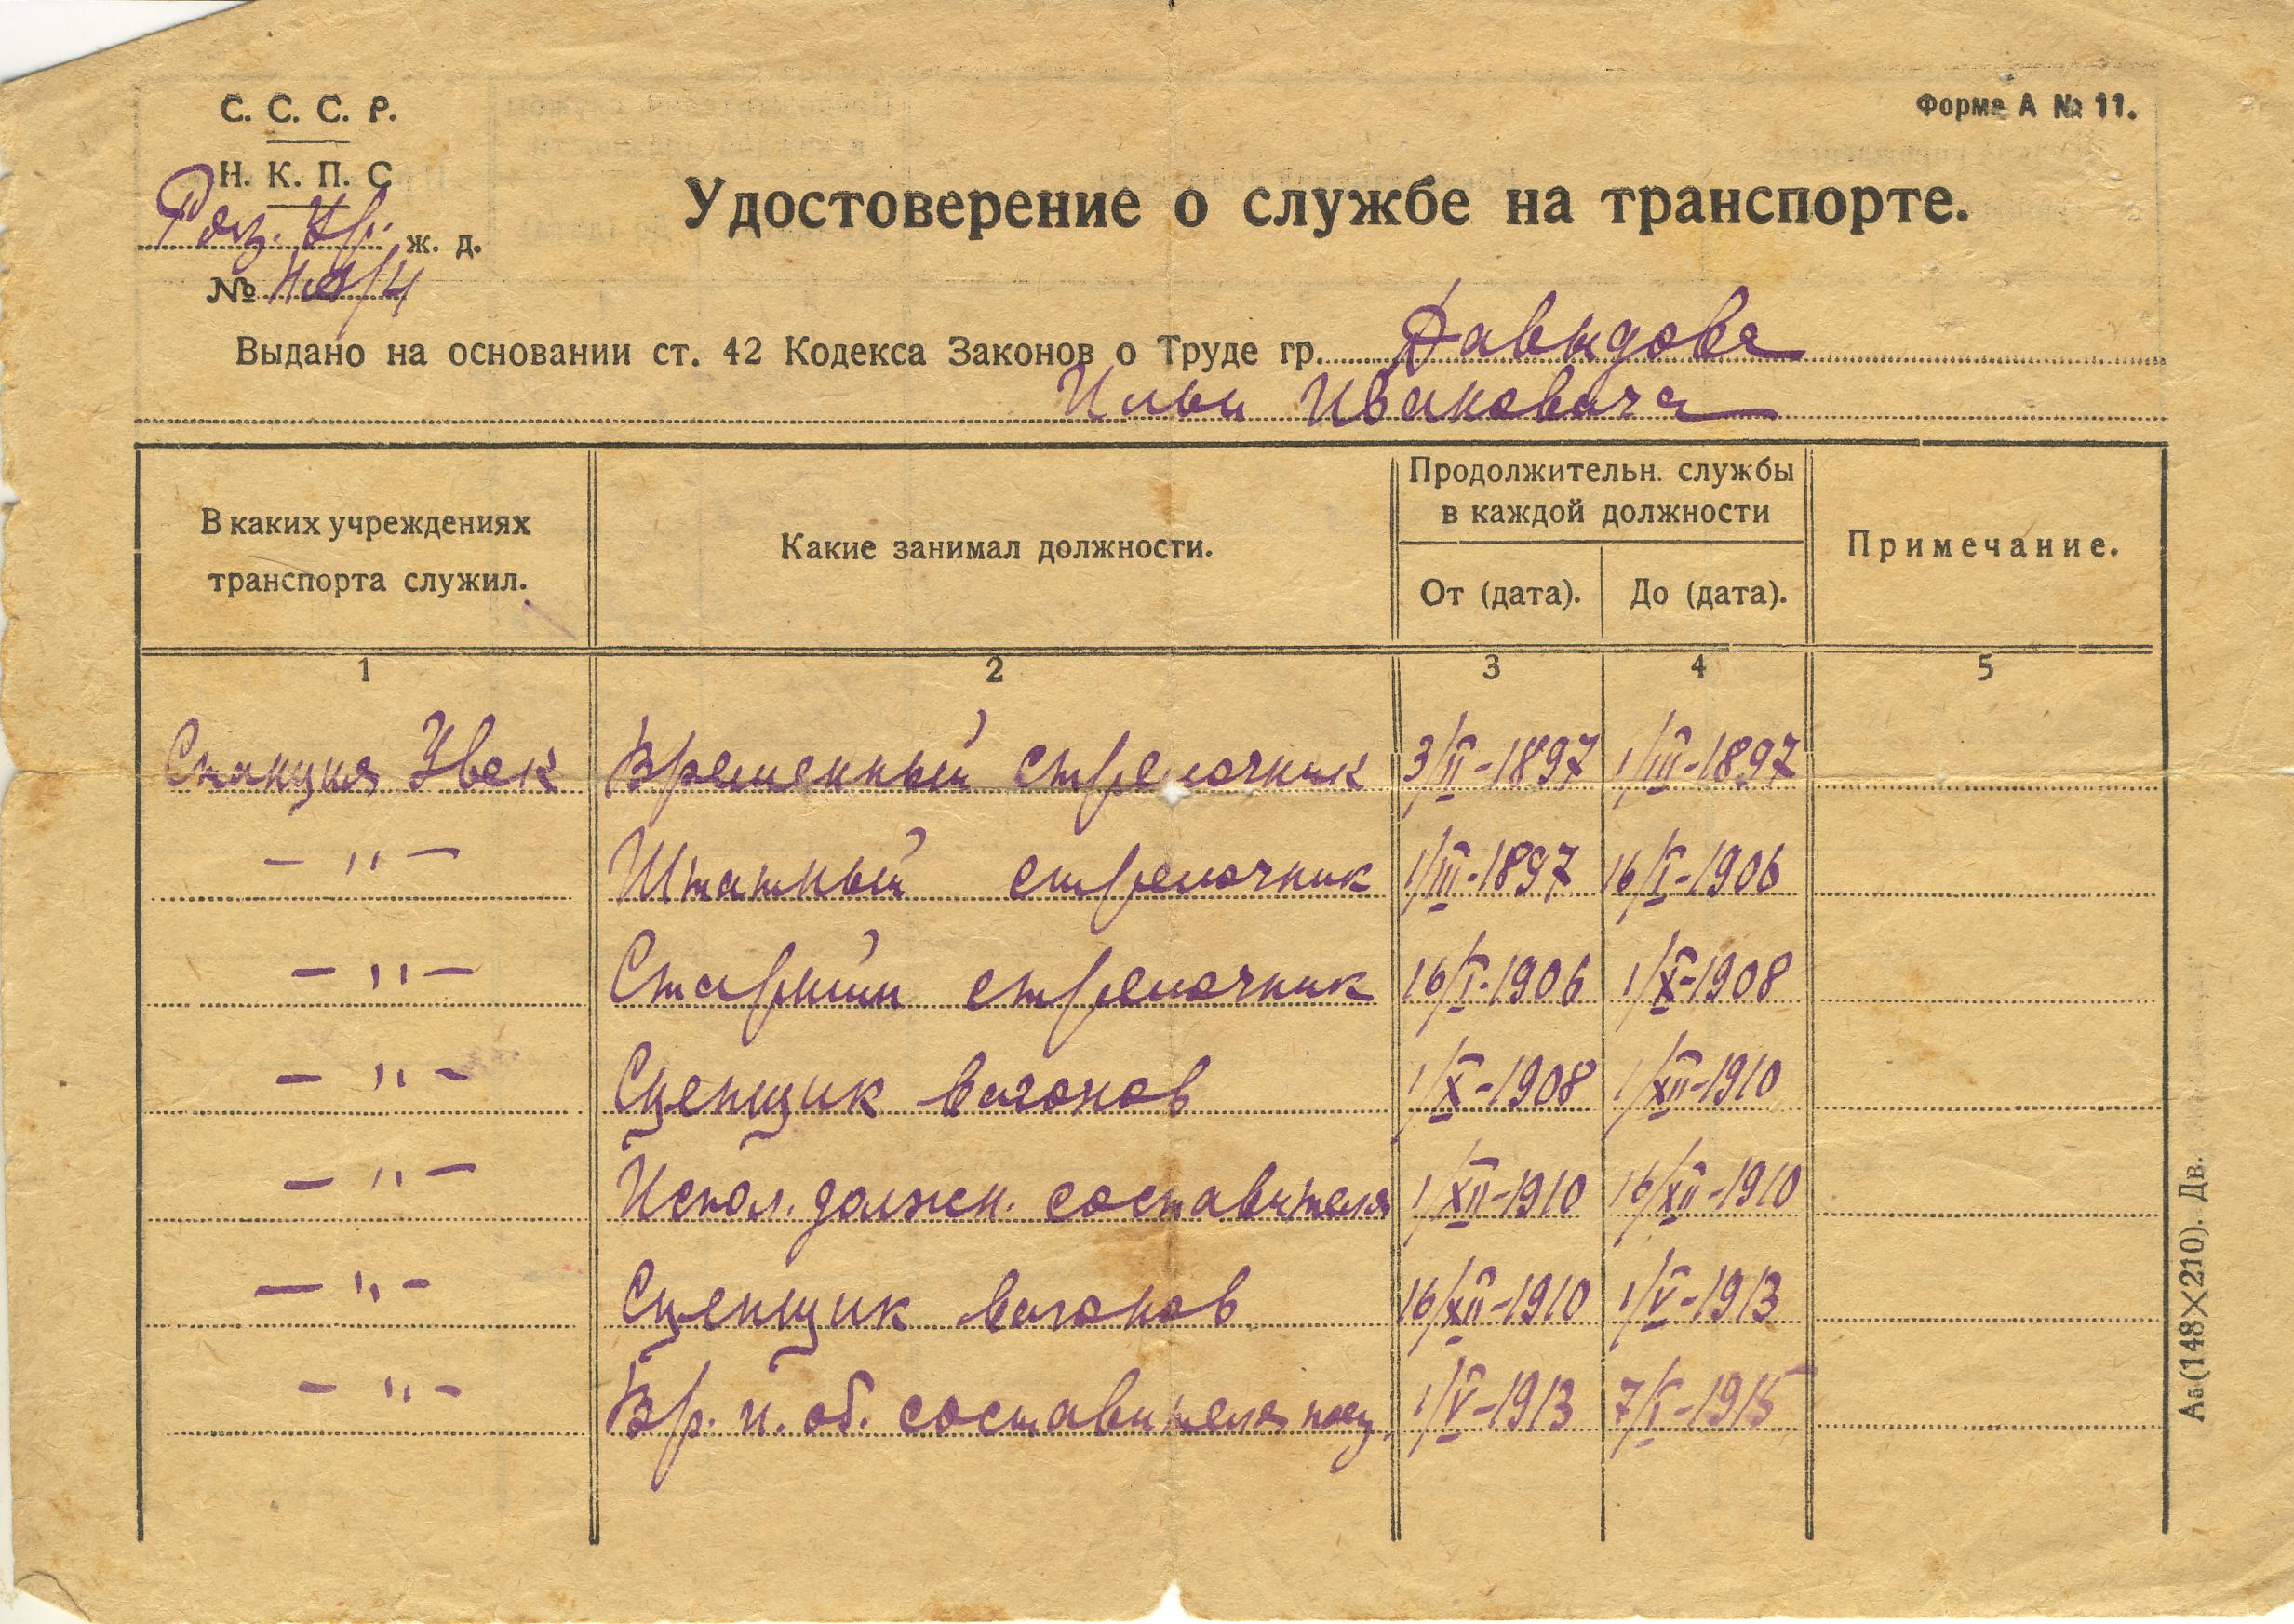 С. С. С. Р.
Форма А № 11.
Н. К. П. С
Удостоверение о службе на транспорте.
Ряз. Ур. ж. д.
№
Выдано на основании ст. 42 Кодекса Законов о Труде гр. Давыдова
Ильи Ивановича
В каких учреждениях транспорта служил.
Какие занимал должности.
Продолжительн. службы в каждой должности
От (дата).
До (дата).
Примечание.
1 2 3 4 5
Станция Увек Временный стрелочник 3/II-1897 1/III-1897
— " — Штатный стрелочник 1/III-1897 16/I-1906
— " — Старший стрелочник 16/I-1906 1/X-1908
— " — Сцепщик вагонов 1/X-1908 1/XII-1910
— " — Испол. должн. составителя 1/XII-1910 16/XII-1910
— " — Сцепщик вагонов 16/XII-1910 1/V-1913
— " — Вр. и. об. составителя поезд. 1/V-1913 7/I-1915
А5 (148×210). Дв.